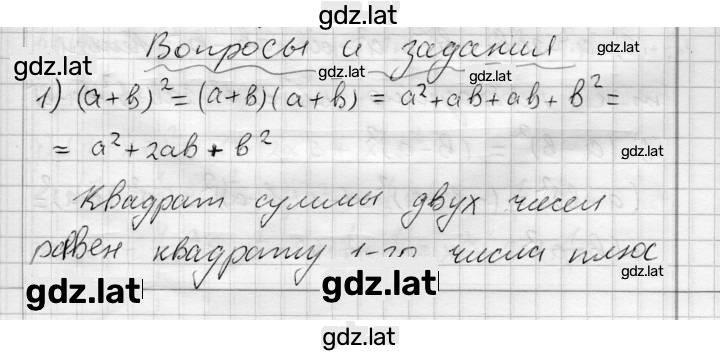 gdz.lat
Вопросы и задания gdz.lat
gdz.lat gdz.lat gdz.lat
1) (a+b)² = (a+b)(a+b) = a²+ab+ab+b² =
= a²+2ab+b² gdz.lat
Квадрат суммы двух чисел
равен квадрату 1-го числа плюс
gdz.lat gdz.lat gdz.lat
gdz.lat